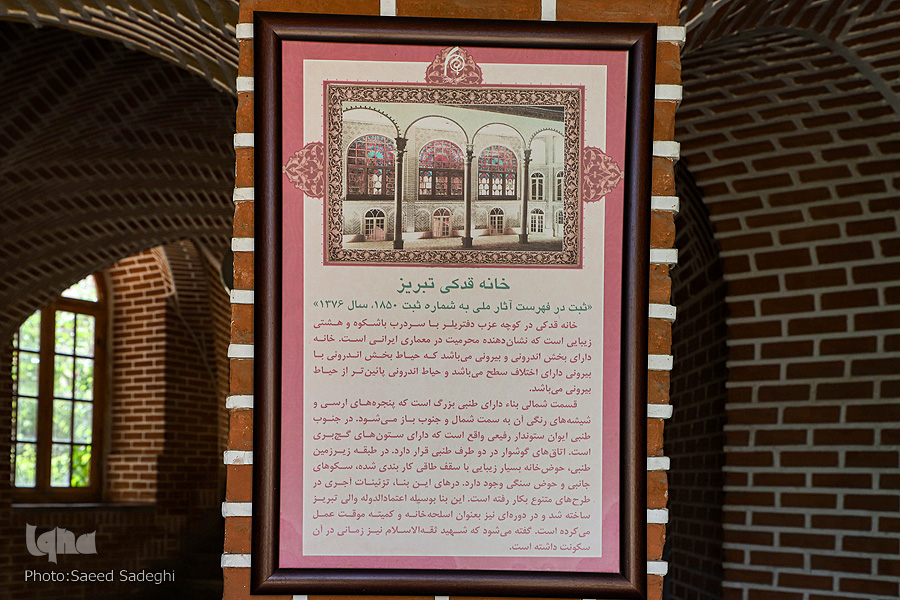 خانه قدکی تبریز
«ثبت در فهرست آثار ملی به شماره ثبت ۱۸۵۰، سال ۱۳۷۶»
خانه قدکی در کوچه عزب دفتریلر با سردرب باشکوه و هشتی
زیبایی است که نشان‌دهنده محرمیت در معماری ایرانی است. خانه
دارای بخش اندرونی و بیرونی می‌باشد که حیاط بخش اندرونی با
بیرونی دارای اختلاف سطح می‌باشد و حیاط اندرونی پائین‌تر از حیاط
بیرونی می‌باشد.
قسمت شمالی بناء دارای طنبی بزرگ است که پنجره‌های ارسی و
شیشه‌های رنگی آن به سمت شمال و جنوب باز می‌شود. در جنوب
طنبی ایوان ستوندار رفیعی واقع است که دارای ستون‌های گچ‌بری
است. اتاق‌های گوشوار در دو طرف طنبی قرار دارد. در طبقه زیرزمین
طنبی، حوض‌خانه بسیار زیبایی با سقف طاقی کار بندی شده، سکوهای
جانبی و حوض سنگی وجود دارد. درهای این بنا، تزئینات آجری در
طرح‌های متنوع بکار رفته است. این بنا بوسیله اعتمادالدوله والی تبریز
ساخته شد و در دوره‌ای نیز بعنوان اسلحه‌خانه و کمیته موقت عمل
می‌کرده است. گفته می‌شود که شهید ثقه‌الاسلام نیز زمانی در آن
سکونت داشته است.
iqna
Photo:Saeed Sadeghi